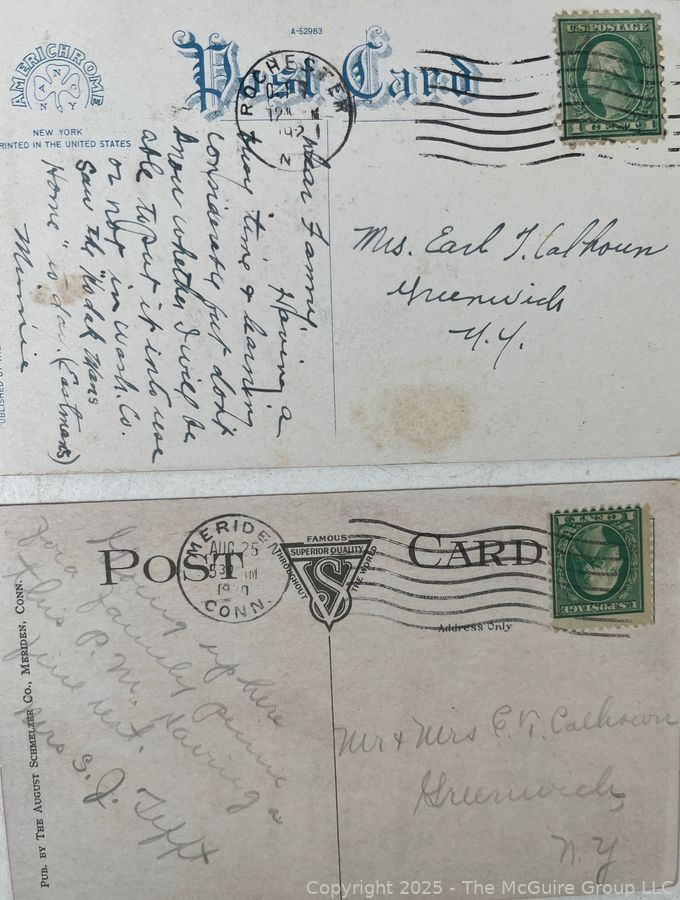 A-52983
Post Card
AMERICHROME
ANCNY
NEW YORK
PRINTED IN THE UNITED STATES
PUBLISHED BY THE
ROCHESTER
192
N
U.S. POSTAGE
1 CENT 1
Dear Family:
Having a
fine time & learning
considerable but don't
know whether I will be
able to put it into use
or not in Wash. Co.
Saw the "Kodak Mans
Home" to-day. (Eastmans)
Minnie
Mrs. Earl T. Calhoun
Greenwich
N.Y.
POST CARD
MERIDEN
AUG 25
CONN.
FAMOUS
SUPERIOR QUALITY
THROUGHOUT THE WORLD
S
Address Only
U.S. POSTAGE
PUB. BY THE AUGUST SCHMELZER CO., MERIDEN, CONN.
Going up here
for a family picnic
this P.M. Having a
fine rest.
Mrs S. J. Tefft
Mr & Mrs E. T. Calhoun
Greenwich
N.Y
Copyright 2025 - The McGuire Group LLC